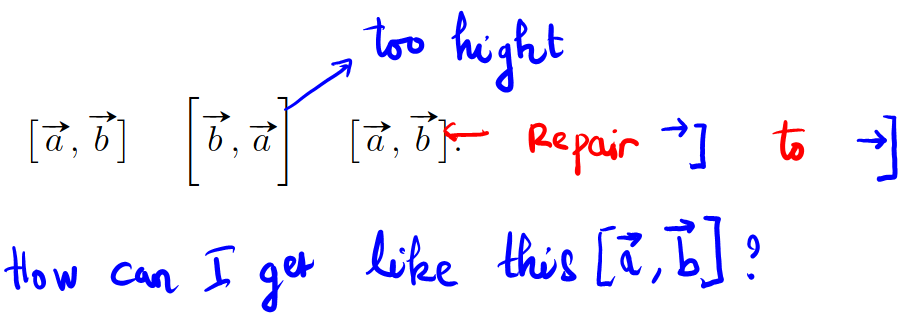 too hight
[a⃗, b⃗] [b⃗, a⃗] [a⃗, b⃗]. ← Repair →] to →]
How can I get like this [a⃗, b⃗] ?